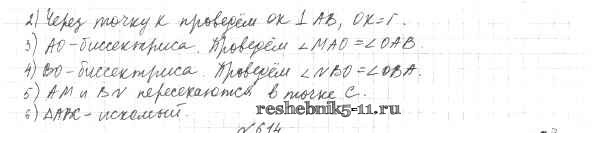 2) Через точку К проведём ОК ⊥ АВ, ОК = r.
3) АО - биссектриса. Проведём ∠МАО = ∠ОАВ.
4) ВО - биссектриса. Проведём ∠NBO = ∠ОВА.
5) АМ и BN пересекаются в точке С.
6) ΔАВС - искомый.
reshebnik5-11.ru
№614